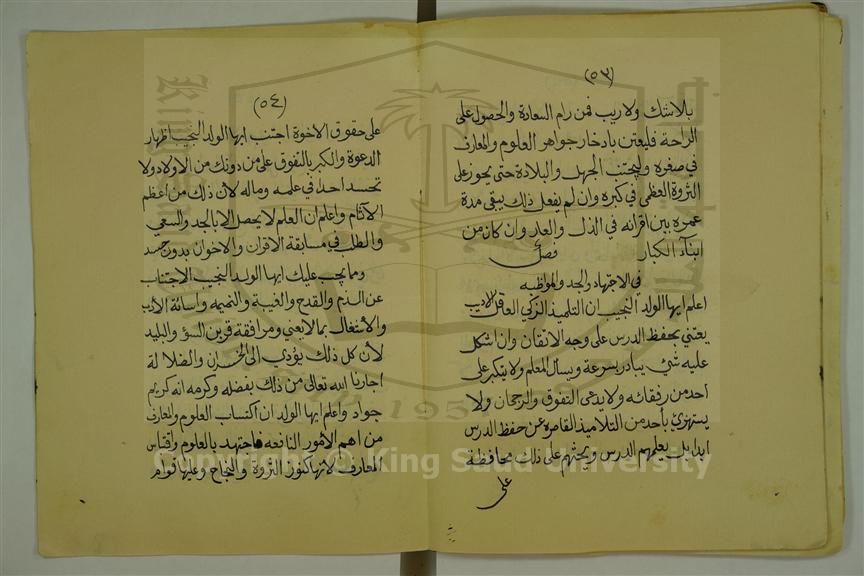 (٥٣)
بلا شك ولا ريب فمن رام السعادة والحصول على
الراحة فليعتن بادخار جواهر العلوم والمعارف
في صغره وليجتنب الجهل والبلادة حتى يحوز على
الثروة العظمى في كبره وان لم يفعل ذلك يبقى مدة
عمره بين اقرانه في الذل والعار وان كان من
ابناء الكبار فصل
في الاجتهاد والجد والمواظبه
اعلم ايها الولد النجيب ان التلميذ الزكي العاقل الاديب
يعتني بحفظ الدرس على وجه الاتقان وان اشكل
عليه شئ يبادر بسرعة ويسأل المعلم ولا يتكبر على
احد من رفقائه ولا يدعى التفوق والرجحان ولا
يستهزئ بأحد من التلاميذ القاصره عن حفظ الدرس
ابدا بل يعلمهم الدرس ويحثهم على ذلك محافظة
على
(٥٤)
على حقوق الاخوة اجتنب ايها الولد النجيب اظهار
الدعوة والكبر بالتفوق على من دونك من الاولاد ولا
تحسد احدا في علمه وماله لأن ذلك من اعظم
الآثام واعلم ان العلم لا يحصل الا بالجد والسعي
والطلب في مسابقة الاقران والاخوان بدون حسد
ومما يجب عليك ايها الولد النجيب الاجتناب
عن الذم والقدح والغيبة والنميمه واسائة الأدب
والأشتغال بما لا يعني ومرافقة قرين السؤ والبليد
لأن كل ذلك يؤدي الى الخسران والضلالة
اجارنا الله تعالى من ذلك بفضله وكرمه انه كريم
جواد واعلم ايها الولد ان اكتساب العلوم والمعارف
من اهم الأمور النافعه فاجتهد بالعلوم واقتباس
المعارف لانها كنوز الثروة والنجاح وعليها قوام
Copyright © King Saud University